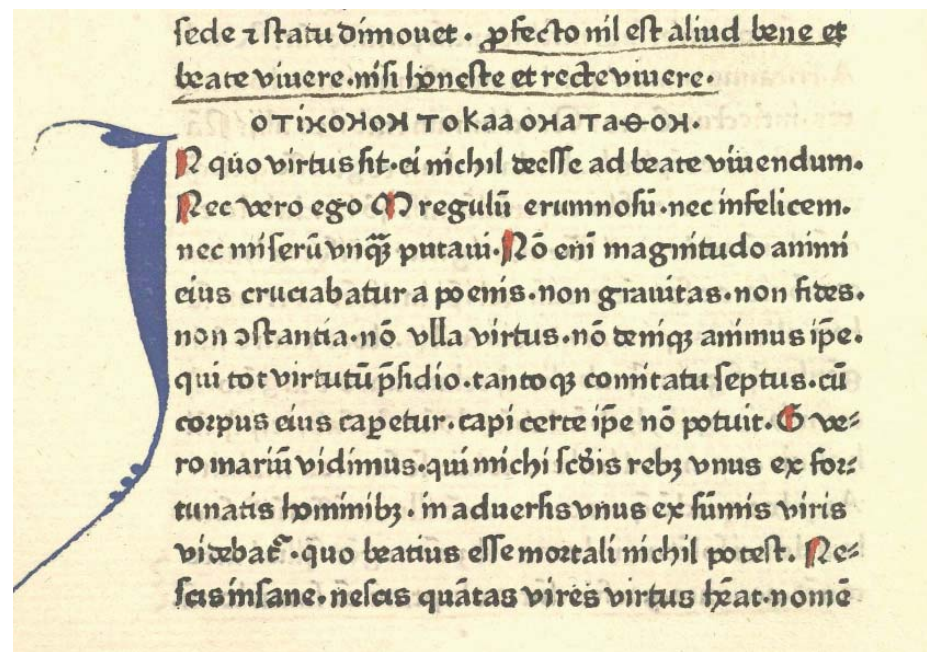 sede ⁊ statu dimouet . ꝓfecto nil est aliud bene et
beate viuere·nisi honeste et recte viuere·
οτικοнοн τοκαλοнαταθοн·
IN quo virtus sit·ei nichil deesse ad beate viuendum·
Nec vero ego M regulū erumnosū·nec infelicem·
nec miserū vnqꝫ̄ putaui·Nō eni magnitudo animi
eius cruciabatur a poenis·non grauitas·non fides·
non ↄstantia·nō vlla virtus·nō deniqꝫ animus ip̄e·
qui tot virtutū p̄sidio·tantoqꝫ comitatu septus·cū
corpus eius caꝑetur·capi certe ip̄e nō potuit· G ve⸗
ro mariū vidimus·qui michi scd̄is rebꝫ vnus ex for⸗
tunatis hominibꝫ · in aduersis vnus ex sūmis viris
videbat᷑ ·quo beatius esse mortali nichil potest. Ne⸗
scis insane·nescis quātas vires virtus hēat·nomē